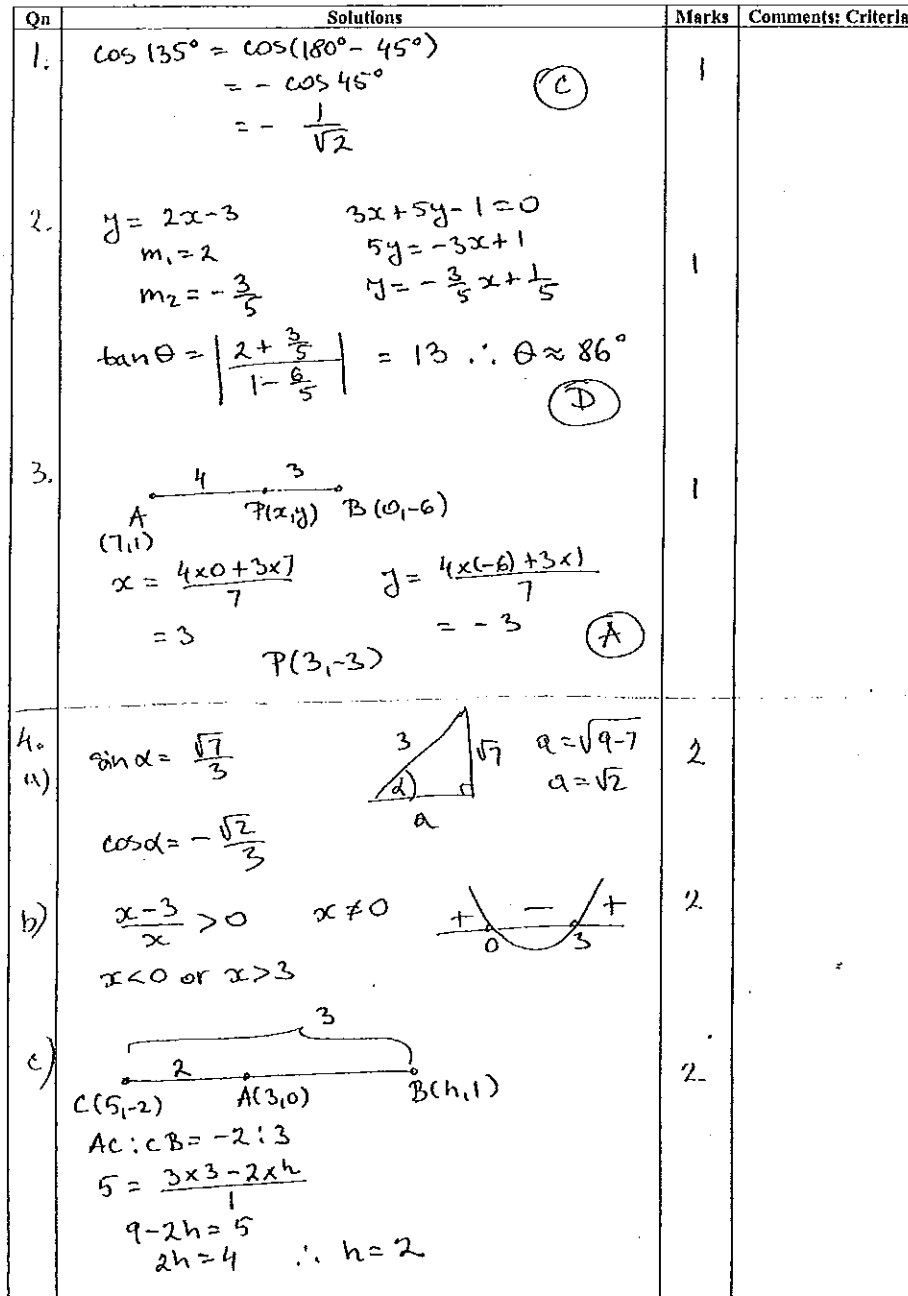 Qn Solutions Marks Comments: Criteria
1. cos 135° = cos(180° - 45°) 1
= - cos 45° C
= - 1/√2
2. y = 2x-3 3x+5y-1=0 1
m₁ = 2 5y = -3x+1
m₂ = -3/5 y = -3/5 x + 1/5
tan θ = | (2 + 3/5) / (1 - 6/5) | = 13 ∴ θ ≈ 86°
D
3. 4 3 1
A P(x,y) B(0,-6)
(7,1)
x = (4×0+3×7)/7 y = (4×(-6)+3×1)/7
= 3 = -3 A
P(3,-3)
4. (a) sin α = √7/3 3 √7 α a a = √(9-7) 2
a = √2
cos α = -√2/3
b) (x-3)/x > 0 x ≠ 0 + - + 0 3 2
x<0 or x>3
c) 3 2
2
C(5,-2) A(3,0) B(h,1)
AC : CB = -2 : 3
5 = (3×3 - 2×h)/1
9-2h = 5
2h = 4 ∴ h = 2